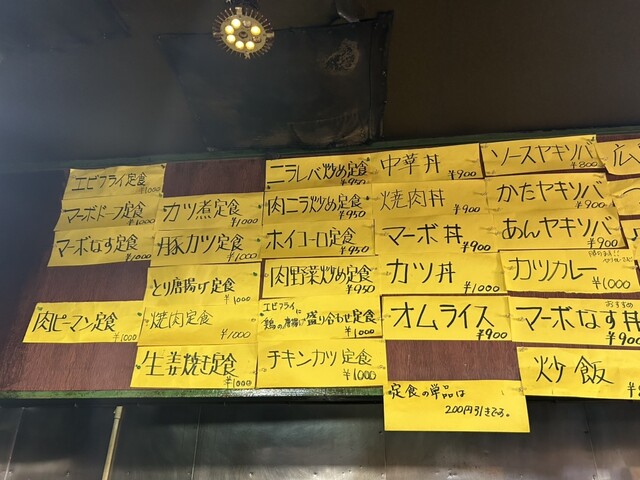 エビフライ定食
¥1000
マーボドーフ定食
¥1000
マーボなす定食
¥1000
肉ピーマン定食
¥1000
カツ煮定食
¥1000
豚カツ定食
¥1000
とり唐揚げ定食
¥1000
焼肉定食
¥1000
生姜焼き定食
¥1000
ニラレバ炒め定食
¥950
肉ニラ炒め定食
¥950
ホイコーロ定食
¥950
肉野菜炒め定食
¥950
エビフライに
鶏の唐揚げ盛り合わせ定食
¥1000
チキンカツ定食
¥1000
中華丼
¥900
焼肉丼
¥900
マーボ丼
¥900
カツ丼
¥1000
オムライス
¥900
定食の単品は
200円引きです。
ソースヤキソバ
¥800
かたヤキソバ
¥900
あんヤキソバ
¥900
カツカレー
¥1000
おすすめ
マーボなす丼
¥900
炒飯
広